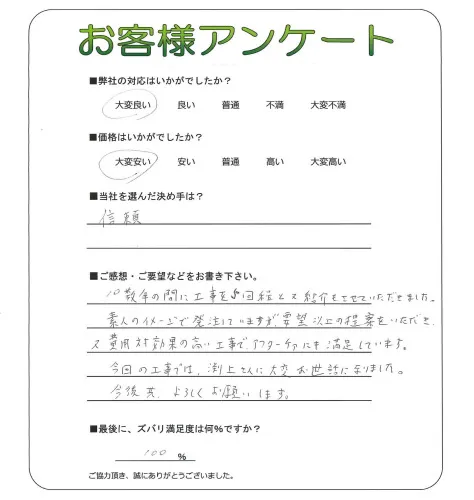 お客様アンケート
■弊社の対応はいかがでしたか？
大変良い 良い 普通 不満 大変不満
■価格はいかがでしたか？
大変安い 安い 普通 高い 大変高い
■当社を選んだ決め手は？
信頼
■ご感想・ご要望などをお書き下さい。
10数年の間に工事を5回組と ご紹介もさせていただきました。
素人のイメージで発注していますが、要望以上の提案をいただき、
費用対効果の高い工事で、アフターケアにも満足しています。
今回の工事では、渕上さんに大変お世話になりました。
今後共、よろしくお願いします。
■最後に、ズバリ満足度は何％ですか？
100 ％
ご協力頂き、誠にありがとうございました。